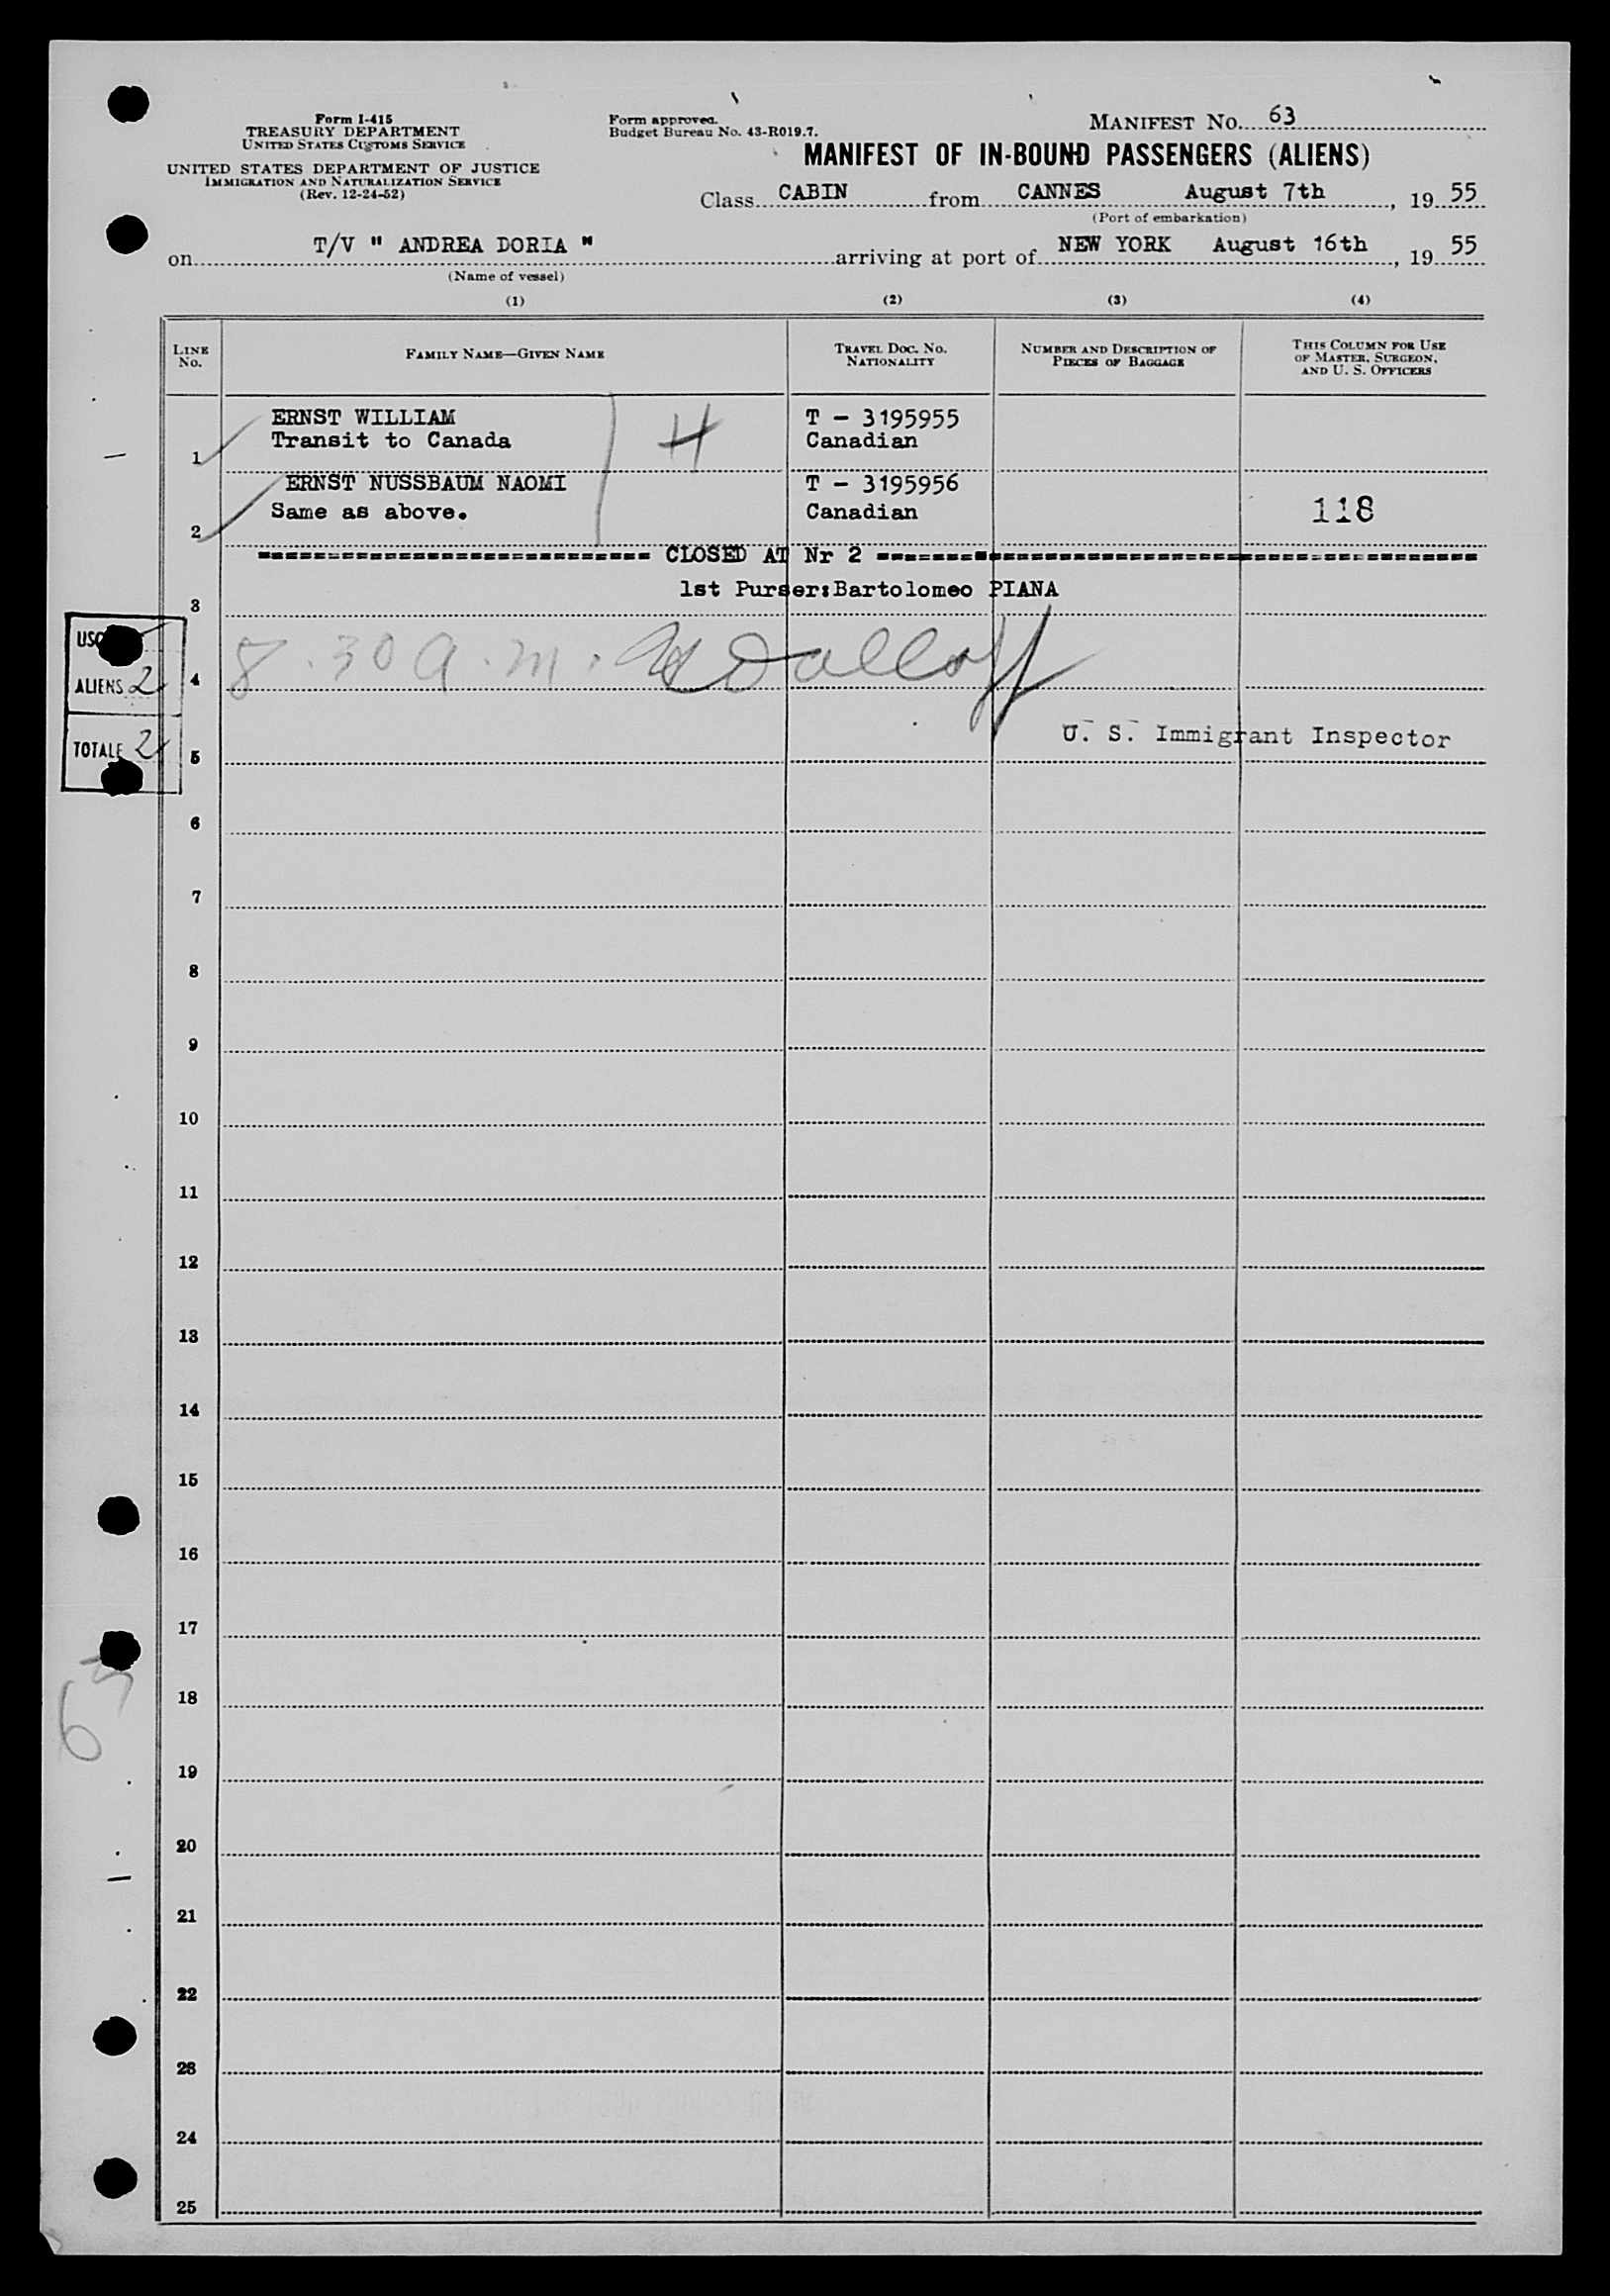 Form I-415
TREASURY DEPARTMENT
UNITED STATES CUSTOMS SERVICE
UNITED STATES DEPARTMENT OF JUSTICE
IMMIGRATION AND NATURALIZATION SERVICE
(Rev. 12-24-52)
Form approved.
Budget Bureau No. 43-R019.7.
MANIFEST NO. 63
MANIFEST OF IN-BOUND PASSENGERS (ALIENS)
Class CABIN from CANNES August 7th, 19 55
(Port of embarkation)
on T/V " ANDREA DORIA " arriving at port of NEW YORK August 16th, 19 55
(Name of vessel)
(1) (2) (3) (4)
LINE No. FAMILY NAME—GIVEN NAME TRAVEL DOC. NO. NATIONALITY NUMBER AND DESCRIPTION OF PIECES OF BAGGAGE THIS COLUMN FOR USE OF MASTER, SURGEON, AND U. S. OFFICERS
ERNST WILLIAM T - 3195955
Transit to Canada H Canadian
1
ERNST NUSSBAUM NAOMI T - 3195956
Same as above. Canadian 118
2
CLOSED AT Nr 2
1st Purser:Bartolomeo PIANA
3
USC
ALIENS 2
4 8.30 a.m.
TOTALE 2
U. S. Immigrant Inspector
5
6
7
8
9
10
11
12
13
14
15
16
17
18
19
20
21
22
23
24
25